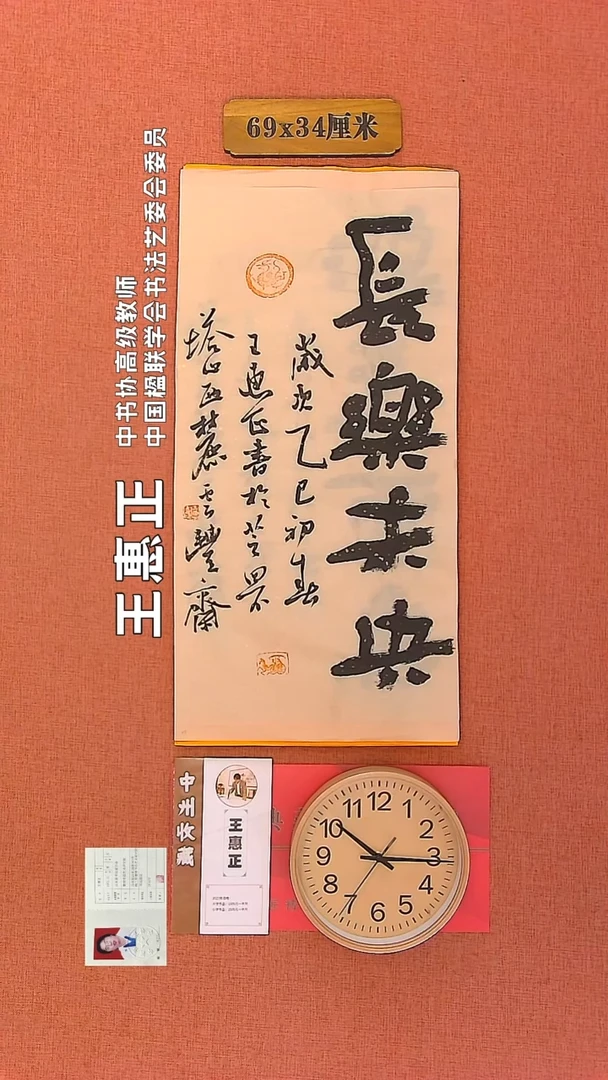 69x34厘米
長樂未央
歲次乙巳初春
王惠正書於
塔山五麓雲豐齋
中书协高级教师
中国楹联学会书法艺委会委员
王惠正
王惠正
12
1
2
3
4
5
6
7
8
9
10
11